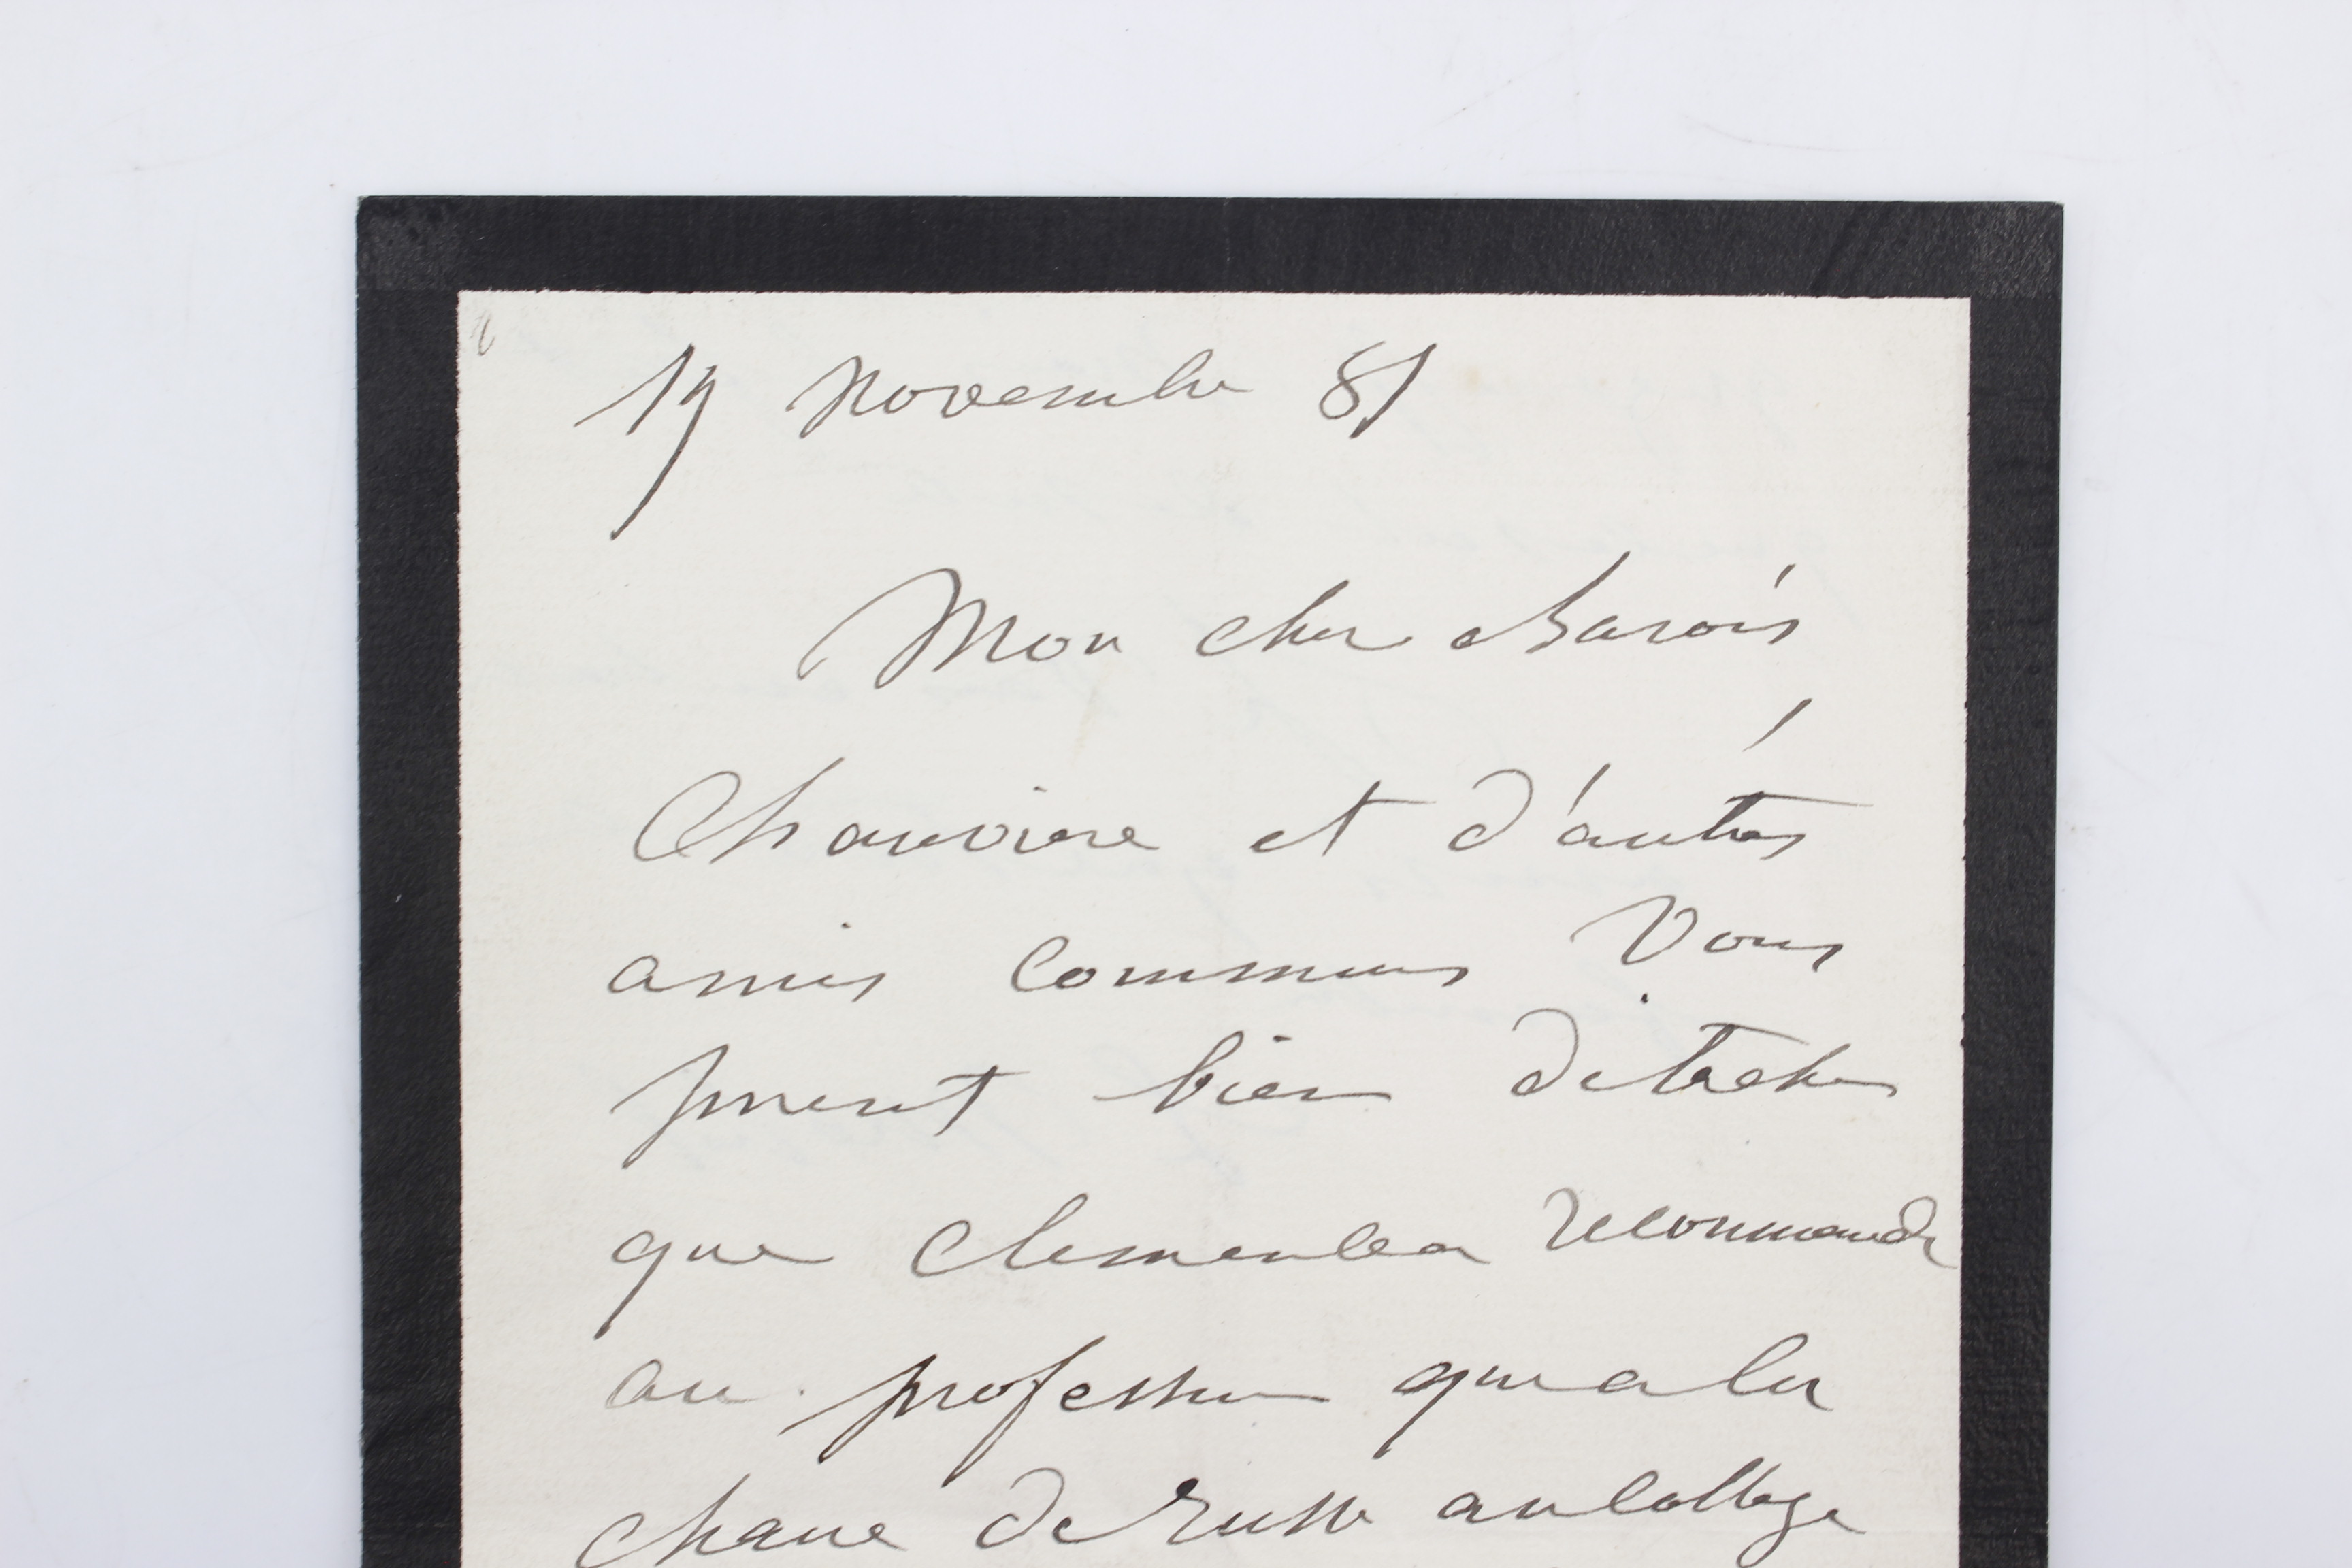 19 novembre 81
Mon cher Barois
Chauviere et d'autres
amis communs vous
prient bien de tacher
que Clemenceau recommande
au professeur qui a la
chaire de russe au College